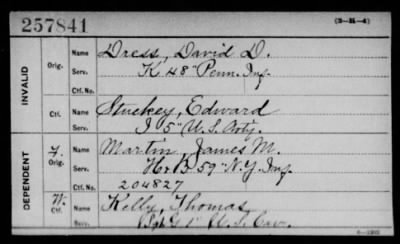 257841 (3-H-4)
INVALID
Orig. Name Dress, David D.
Serv. K 48" Penn. Inf.
Ctf. No.
Ctf. Name Stuckey, Edward
Serv. I 5" U.S. Arty.
DEPENDENT
F. Orig. Name Martin, James M.
Serv. H & B 59" N.Y. Inf.
Ctf. No. 204827
W. Ctf. Name Kelly, Thomas
Serv. G 1" U.S. Cav.